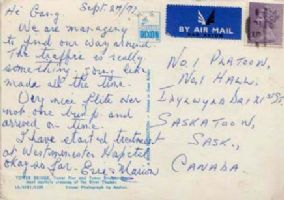 Hi Gang Sept. 27/72
We are managing
to find our way around.
The traffic is really
something. Tours being
made all the time.
Very nice flite over
not one bump and
arrived on time.
I have started treatment
at Westminster Hospital
okay so far. Marion
BY AIR MAIL
No 1 PLATOON,
No. 1 HALL,
IDYLWYLD DR
SASKATOON,
SASK.,
CANADA
TOWER BRIDGE